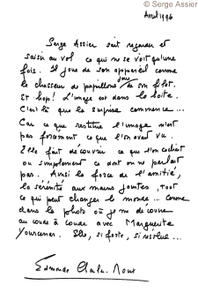 © Serge Assier
Avril 1996
Serge Assier sait regarder et
saisir au vol ce qui ne se voit qu'une
fois. Il joue de son appareil comme
le chasseur de papillons joue de son filet.
Et hop! L'image est dans la boîte.
C'est là que la surprise commence...
Car ce que restitue l'image n'est
pas forcément ce que l'on avait vu.
Elle fait découvrir ce que l'on cachait
ou simplement ce dont on ne parlait
pas. Ainsi la force de l'amitié,
la sérénité aux mains jointes, tout
ce qui peut changer le monde... comme
dans la photo où je me découvre
au coude à coude avec Marguerite
Yourcenar. Elle, si forte, si
Edmonde Charles-Roux